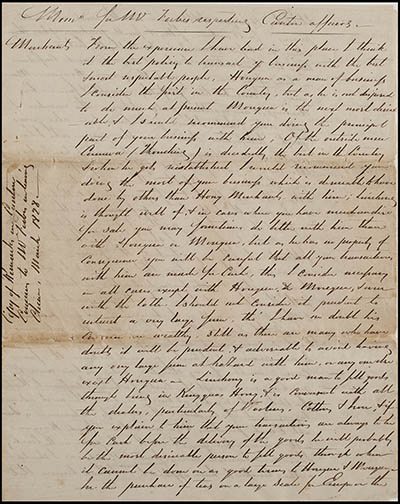 Memo for Mr Forbes respecting Canton affairs.
Merchants From the experience I have had in this place I think
it the best policy to transact business with the best
most respectable people. Houqua as a man of business
I consider the first in the Country, but as he is not disposed
to do much at present Mouqua is the most desir-
able, & I should recommend you doing the principal
part of your business with him. Of the outside men
Conseequa is decidedly the best in the Country
& when he gets reestablished I would recommend your
doing the most of your business which is desirable to have
done by others than Hong Merchants with him;
is thought well of & in cases when you have merchandise
for sale you may sometimes do better with him than
with Houqua or Mouqua, but as he has no property of
consequence you will be careful that all your transactions
with him are made for Cash, this I consider necessary
in all cases except with Houqua & Mouqua, & even
with the latter I should not consider it prudent to
intrust a very large sum, tho' I have no doubt his
Concern is wealthy. Still as there are many who have
doubts it will be prudent & advisable to avoid having
any very large sum at hazard with him, or any one else
except Houqua — is a good man to sell goods
through being in Kingqua's Hong, & is connected with all
the dealers, particularly of Cotton, & if
you explain to him that your transactions are always to be
for Cash before the delivery of the goods he will probably
be the most desirable person to sell goods through when
it cannot be done on as good terms to Houqua & Mouqua.
In the purchase of teas on a large scale for Europe or the
Copy of Remarks on Canton
given to Mr Forbes on leaving
China, March 1828.